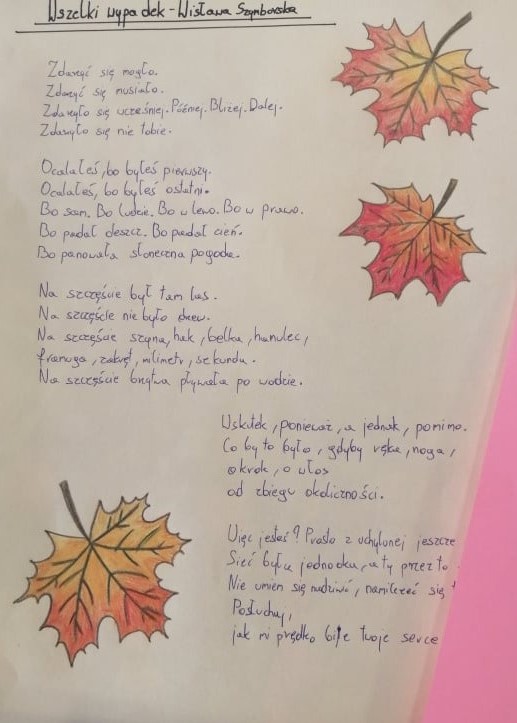 Wszelki wypadek - Wisława Szymborska
Zdarzyć się mogło.
Zdarzyć się musiało.
Zdarzyło się wcześniej. Później. Bliżej. Dalej.
Zdarzyło się nie tobie.
Ocalałeś, bo byłeś pierwszy.
Ocalałeś, bo byłeś ostatni.
Bo sam. Bo ludzie. Bo w lewo. Bo w prawo.
Bo padał deszcz. Bo padał cień.
Bo panowała słoneczna pogoda.
Na szczęście był tam las.
Na szczęście nie było drzew.
Na szczęście szyna, hak, belka, hamulec,
framuga, zakręt, milimetr, sekunda.
Na szczęście brzytwa pływała po wodzie.
Wskutek, ponieważ, a jednak, pomimo.
Co by to było, gdyby ręka, noga,
o krok, o włos
od zbiegu okoliczności.
Więc jesteś? Prosto z uchylonej jeszcze
Sieć była jednooka, a ty przez to
Nie umiem się nadziwić, namilczeć się
Posłuchaj,
jak mi prędko bije twoje serce